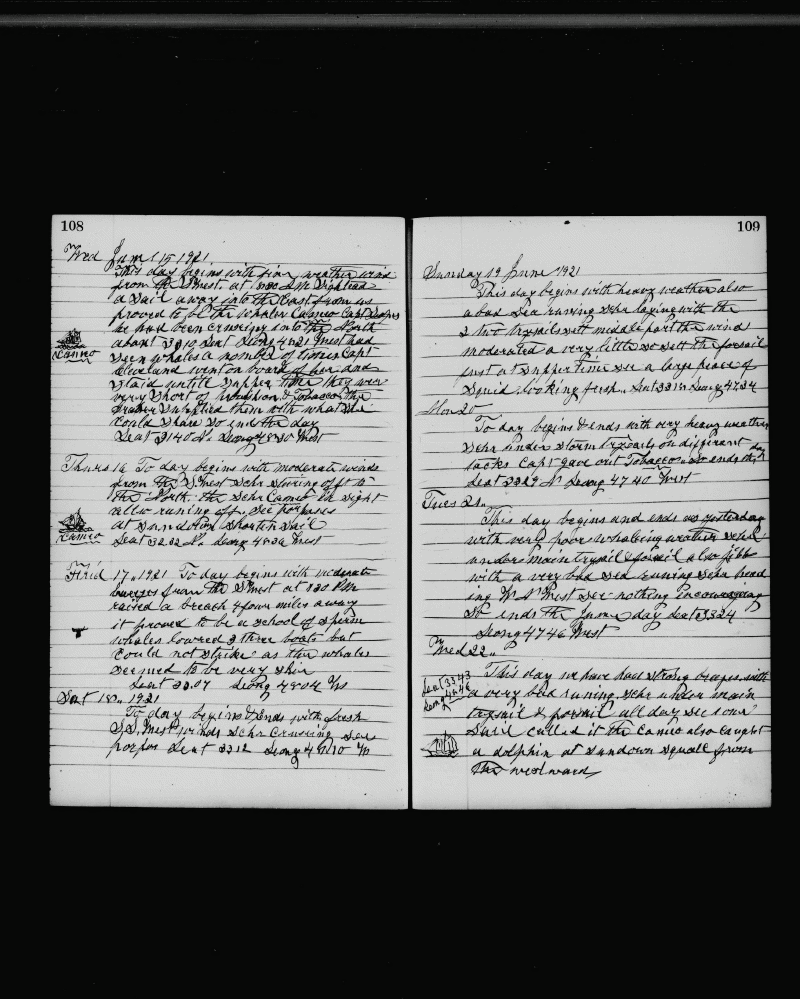 108
Wed June 15 1921
This day begins with fine weather wind
from the S West. at Sighted
a Sail away into the East from us
proved to be the whaler Cameo Capt
he had been cruising into the North
about 3310 Leat Leong 4821 West had
Cameo
Seen whales a nomber of times Capt
Cleveland went on board of her and
Staid untill Supper time they wer
very Short of provision & Tobacco the
Supplied them with what She
Could Share So ends the day
Leat 3140 N. Leong 4830 West
Thurs 16 To day begins with moderate winds
from the S West Schr Stering off to
the North. the Schr Cameo in Sight
allso runing off. See porposes
Cameo
at Sundown Shorten Sail
Leat 3232 N. Leong 4836 West
Frid 17 .. 1921 To day begins with moderate
from the S West at 130 PM
raised a breach 4 four miles away
it proved to be a School of Sperm
whales lowered 3 three boats but
Could not Strike as the whales
Seemed to be very Shie
Leat 33.07 Leong 4804 W
Sat 18 .. 1921
To day begins & Ends with fresh
S.S. West winds Schr Cruising See
porpos Leat 3312 Leong W
109
Sunday 19 June 1921
This day begins with heavy weather also
a bad Sea runing Schr laying with the
2 two trysails sett middle part the wind
moderated a very little so sett the forsail
just at Supper time See a large peace of
Squid looking fresh .. Leat 3318 Leong 4734
Mon 20
To day begins & ends with very heavy weather
Schr under Storm trysails on different
tacks Capt gave out Tobacco. So ends the day
Leat 3329 N Leong 4740 West
Tues 21 ..
This day begins and ends as yesterday
with very poor whaleing weather Schr
under main trysail & forsail also jibb
with a very bad Sea runing Schr head
ing W S West See nothing incouraging
So ends the day Leat 3324
Leong 4746 West
Wed 22 ..
This day we have had Strong breezes with
Leat 3343
Leong 4846
a very bad runing. Schr under main
trysail & forsail all day See 1 one
Sail called it the Cameo also Caught
a dolphin at Sundown Squall from
the westward